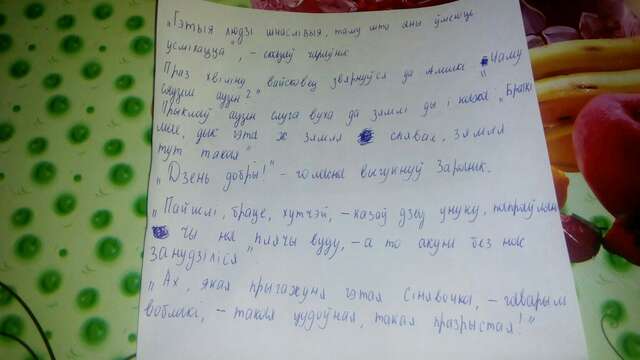 „Гэтыя людзі шчаслівыя, таму што яны ўмеюць
усміхацца", – сказаў чараўнік
Праз хвіліну вайсковец звярнуўся да Аміля: „Чаму
слухаеш адзін?"
Прыклаў адзін слуга вуха да зямлі ды і кажа „Браткі
мае, дык гэта ж зямля спявае, зямля
тут такая"
„Дзень добры!" – голасна выгукнуў Зараннік.
„Пайшлі, браце, хутчэй, – казаў дзед унуку, папраўляючы
на плячы вуду, – а то акуні без нас
занудзіліся"
„Ах, якая прыгажуня гэтая сінявочка, – гавораць
воблакі, – такая цудоўная, такая празрыстая!"